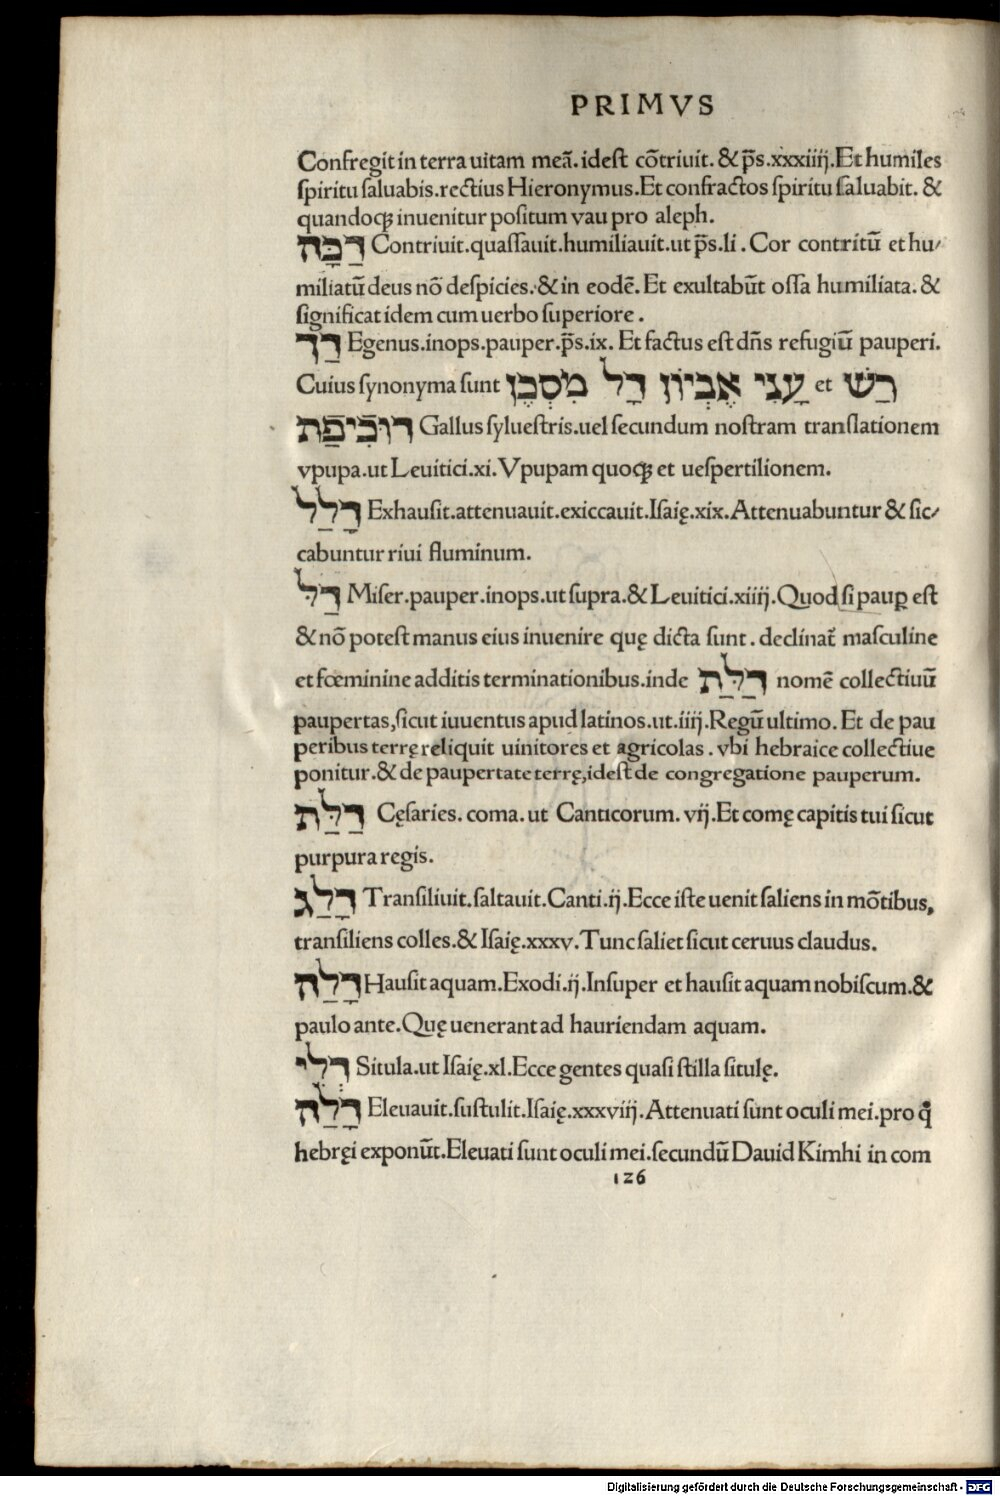 PRIMVS
Confregit in terra uitam meã. idest cõtriuit. & p̃s. xxxiiij. Et humiles
spiritu saluabis. rectius Hieronymus. Et confractos spiritu saluabit. &
quandoqꝫ inuenitur positum vau pro aleph.
דַכָּה Contriuit. quassauit. humiliauit. ut p̃s. li. Cor contritũ et hu/
miliatũ deus nõ despicies. & in eodẽ. Et exultabũt ossa humiliata. &
significat idem cum uerbo superiore.
דַךְ Egenus. inops. pauper. p̃s. ix. Et factus est dñs refugiũ pauperi.
Cuius synonyma sunt רַשׁ et עָנִי אֶבְיוֹן דָל מִסְכֶּן
דוּכִיפַת Gallus syluestris. uel secundum nostram translationem
vpupa. ut Leuitici. xi. Vpupam quoqꝫ et uespertilionem.
דָלַל Exhausit. attenuauit. exiccauit. Isaię. xix. Attenuabuntur & sic/
cabuntur riui fluminum.
דַל Miser. pauper. inops. ut supra. & Leuitici. xiiij. Quod si paup̱ est
& nõ potest manus eius inuenire quę dicta sunt. declinat᷑ masculine
et fœminine additis terminationibus. inde דַלַּת nomẽ collectiuũ
paupertas, sicut iuuentus apud latinos. ut. iiij. Regũ ultimo. Et de pau
peribus terrę reliquit uinitores et agricolas. vbi hebraice collectiue
ponitur. & de paupertate terrę, idest de congregatione pauperum.
דַלַּת Cęsaries. coma. ut Canticorum. vij. Et comę capitis tui sicut
purpura regis.
דָלַג Transiliuit. saltauit. Canti. ij. Ecce iste uenit saliens in mõtibus,
transiliens colles. & Isaię. xxxv. Tunc saliet sicut ceruus claudus.
דָלַה Hausit aquam. Exodi. ij. Insuper et hausit aquam nobiscum. &
paulo ante. Quę uenerant ad hauriendam aquam.
דְלִי Situla. ut Isaię. xl. Ecce gentes quasi stilla situlę.
דָלַה Eleuauit. sustulit. Isaię. xxxviij. Attenuati sunt oculi mei. pro q̃
hebręi exponũt. Eleuati sunt oculi mei. secundũ Dauid Kimhi in com
126
Digitalisierung gefördert durch die Deutsche Forschungsgemeinschaft - DFG